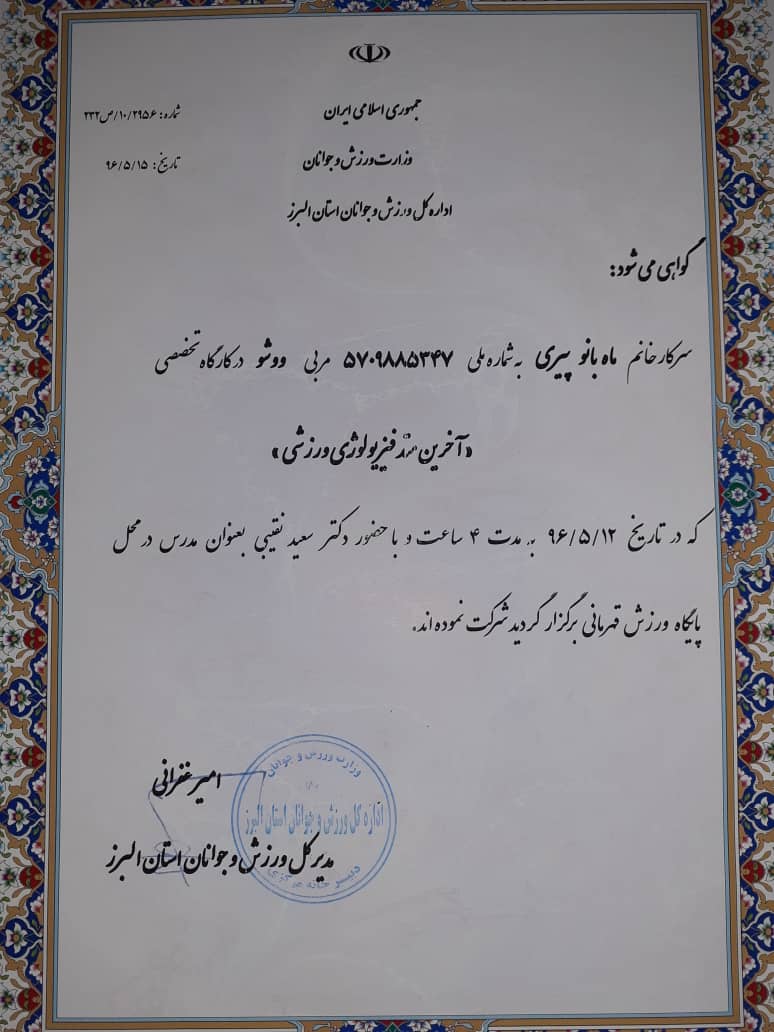 جمهوری اسلامی ایران
وزارت ورزش و جوانان
اداره کل ورزش و جوانان استان البرز
شماره: ۱۰/۲۹۵۶/ص۲۳۲
تاریخ: ۹۶/۵/۱۵
گواهی می شود:
سرکار خانم ماه بانو پیری به شماره ملی ۵۷۰۹۸۸۵۳۴۷ مربی ووشو در کارگاه تخصصی
«آخرین متد فیزیولوژی ورزشی»
که در تاریخ ۹۶/۵/۱۲ به مدت ۴ ساعت و با حضور دکتر سعید نقیبی بعنوان مدرس در محل
پایگاه ورزش قهرمانی برگزار گردید شرکت نموده اند.
امیر غفرانی
مدیر کل ورزش و جوانان استان البرز
وزارت ورزش و جوانان
اداره کل ورزش و جوانان استان البرز
دبیر خانه مرکزی